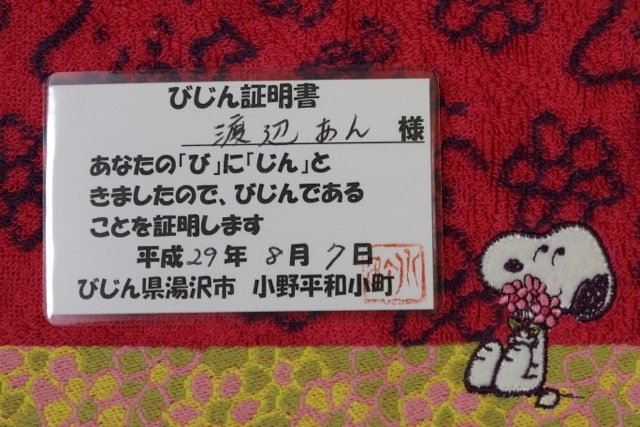 びじん証明書
渡辺あん 様
あなたの「び」に「じん」と
きましたので、びじんである
ことを証明します
平成29年 8月 7日
びじん県湯沢市 小野平和小町